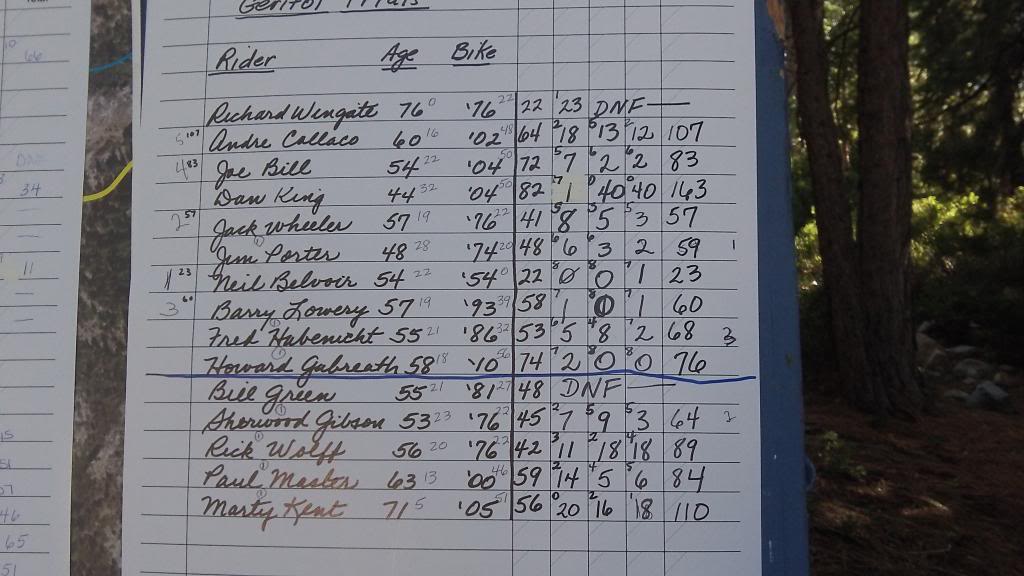 Geritol Trials
Rider Age Bike
Richard Wingate 76 0 '76 22 22 1 23 DNF —
5 107 Andre Collaco 60 16 '02 48 64 2 18 5 13 2 12 107
4 83 Joe Bill 54 22 '04 50 72 5 7 6 2 6 2 83
Dan King 44 32 '04 50 82 7 1 0 40 0 40 163
2 57 Jack Wheeler 57 19 '76 22 41 5 8 5 5 5 3 57
Jim Porter 48 28 '74 20 48 6 6 6 3 2 59 1
1 23 Neil Belvoir 54 22 '54 0 22 8 0 8 0 7 1 23
3 60 Barry Lowery 57 19 '93 39 58 7 1 8 0 7 1 60
Fred Habenicht 55 21 '86 32 53 6 5 4 8 7 2 68 3
Howard Gabreath 58 18 '10 56 74 7 2 8 0 8 0 76
Bill Green 55 21 '81 27 48 DNF —
Sherwood Gibson 53 23 '76 22 45 2 7 5 9 5 3 64 2
Rick Wolff 56 20 '76 22 42 3 11 2 18 4 18 89
Paul Master 63 13 '00 46 59 2 14 4 5 5 6 84
Marty Kent 71 5 '05 51 56 0 20 2 16 1 18 110
66
34
11
46
65
51